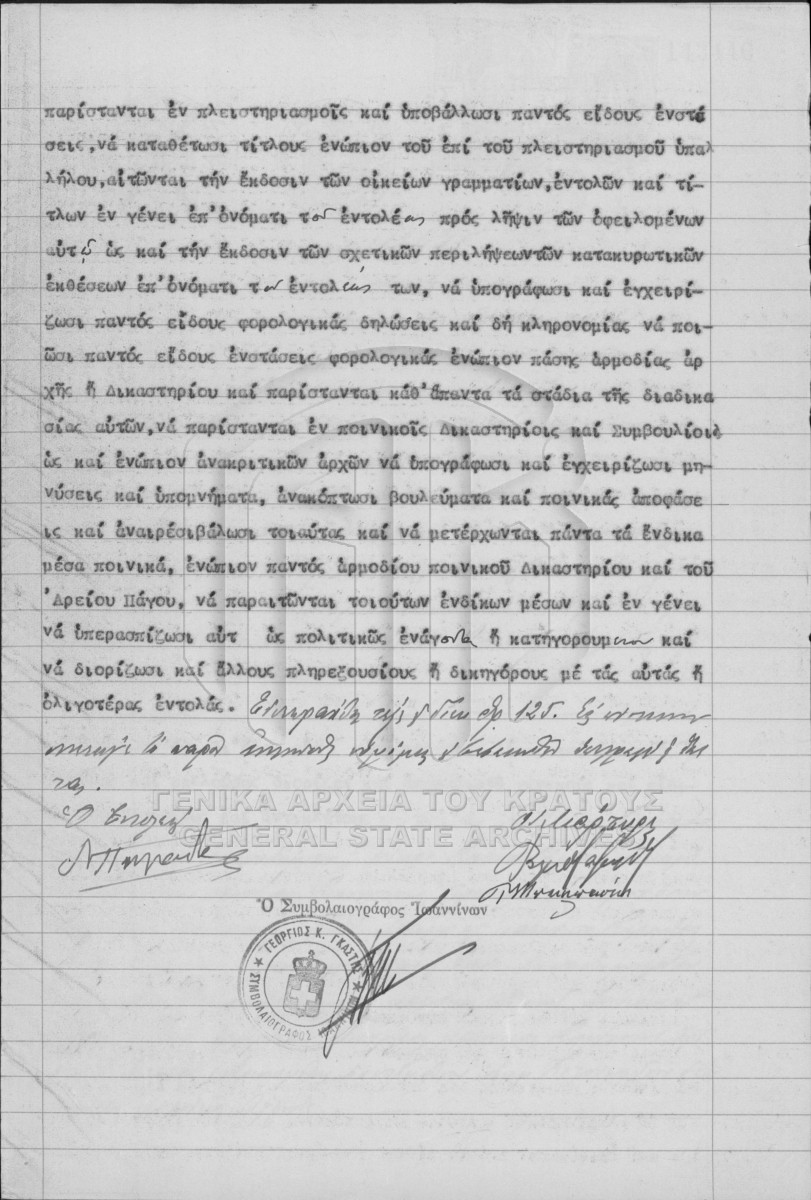 παρίστανται ἐν πλειστηριασμοῖς καί ὑποβάλλωσι παντός εἴδους ἐνστά
σεις, νά καταθέτωσι τίτλους ἐνώπιον τοῦ ἐπί τοῦ πλειστηριασμοῦ ὑπαλ
λήλου, αἰτῶνται τήν ἔκδοσιν τῶν οἰκείων γραμματίων, ἐντολῶν καί τί-
τλων ἐν γένει ἐπ'ὀνόματι τοῦ ἐντολέως πρός λῆψιν τῶν ὀφειλομένων
αὐτῷ ὡς καί τήν ἔκδοσιν τῶν σχετικῶν περιλήψεωντῶν κατακυρωτικῶν
ἐκθέσεων ἐπ'ὀνόματι τοῦ ἐντολέως των, νά ὑπογράφωσι καί ἐγχειρί-
ζωσι παντός εἴδους φορολογικάς δηλώσεις καί δή κληρονομίας νά ποι-
ῶσι παντός εἴδους ἐνστάσεις φορολογικάς ἐνώπιον πάσης ἁρμοδίας ἀρ
χῆς ἤ Δικαστηρίου καί παρίστανται κάθ'ἅπαντα τά στάδια τῆς διαδικα
σίας αὐτῶν, νά παρίστανται ἐν ποινικοῖς Δικαστηρίοις καί Συμβουλίοις
ὡς καί ἐνώπιον ἀνακριτικῶν ἀρχῶν νά ὑπογράφωσι καί ἐγχειρίζωσι μη-
νύσεις καί ὑπομνήματα, ἀνακόπτωσι βουλεύματα καί ποινικάς ἀποφάσε
ις καί ἀναιρέσιβάλωσι τοιαύτας καί νά μετέρχωνται πάντα τά ἔνδικα
μέσα ποινικά, ἐνώπιον παντός ἁρμοδίου ποινικοῦ Δικαστηρίου καί τοῦ
'Αρείου Πάγου, νά παραιτῶνται τοιούτων ἐνδίκων μέσων καί ἐν γένει
νά ὑπερασπίζωσι αὐτ ὡς πολιτικῶς ἐνάγοντα ἤ κατήγορουμενον καί
νά διορίζωσι καί ἄλλους πληρεξουσίους ἤ δικηγόρους μέ τάς αὐτάς ἤ
ὀλιγοτέρας ἐντολάς. 125.
ΓΕΝΙΚΑ ΑΡΧΕΙΑ ΤΟΥ ΚΡΑΤΟΥΣ
GENERAL STATE ARCHIVES
Ὁ Ἐντολεύς Οἱ Μάρτυρες
Ὁ Συμβολαιογράφος Ἰωαννίνων
ΓΕΩΡΓΙΟΣ Κ. ΓΚΑΣΤΗΣ
ΣΥΜΒΟΛΑΙΟΓΡΑΦΟΣ